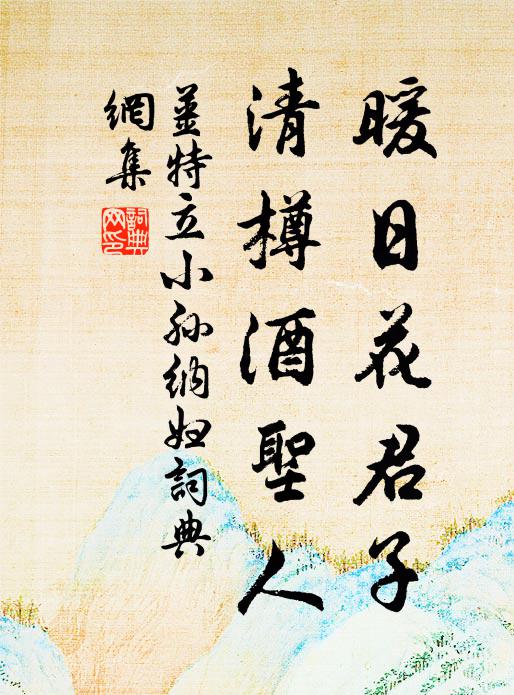 暖日花君子
清樽酒聖人
姜特立小孫納婦詞典
網集
詞典
网印